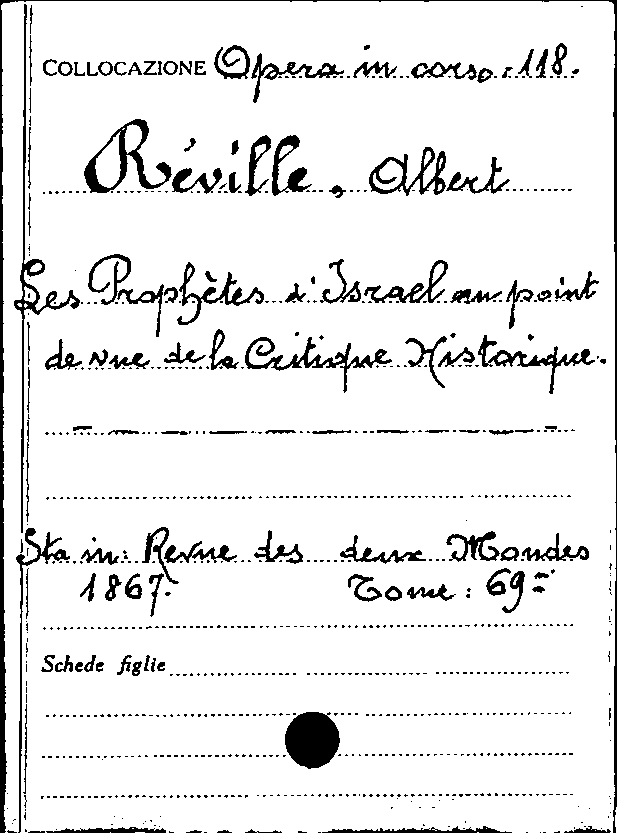 COLLOCAZIONE Opera in corso. 118.
Réville, Albert
Les Prophètes d'Israel au point
de vue de la Critique Historique.
Sta in: Revue des deux Mondes
1867. Tome: 69=
Schede figlie